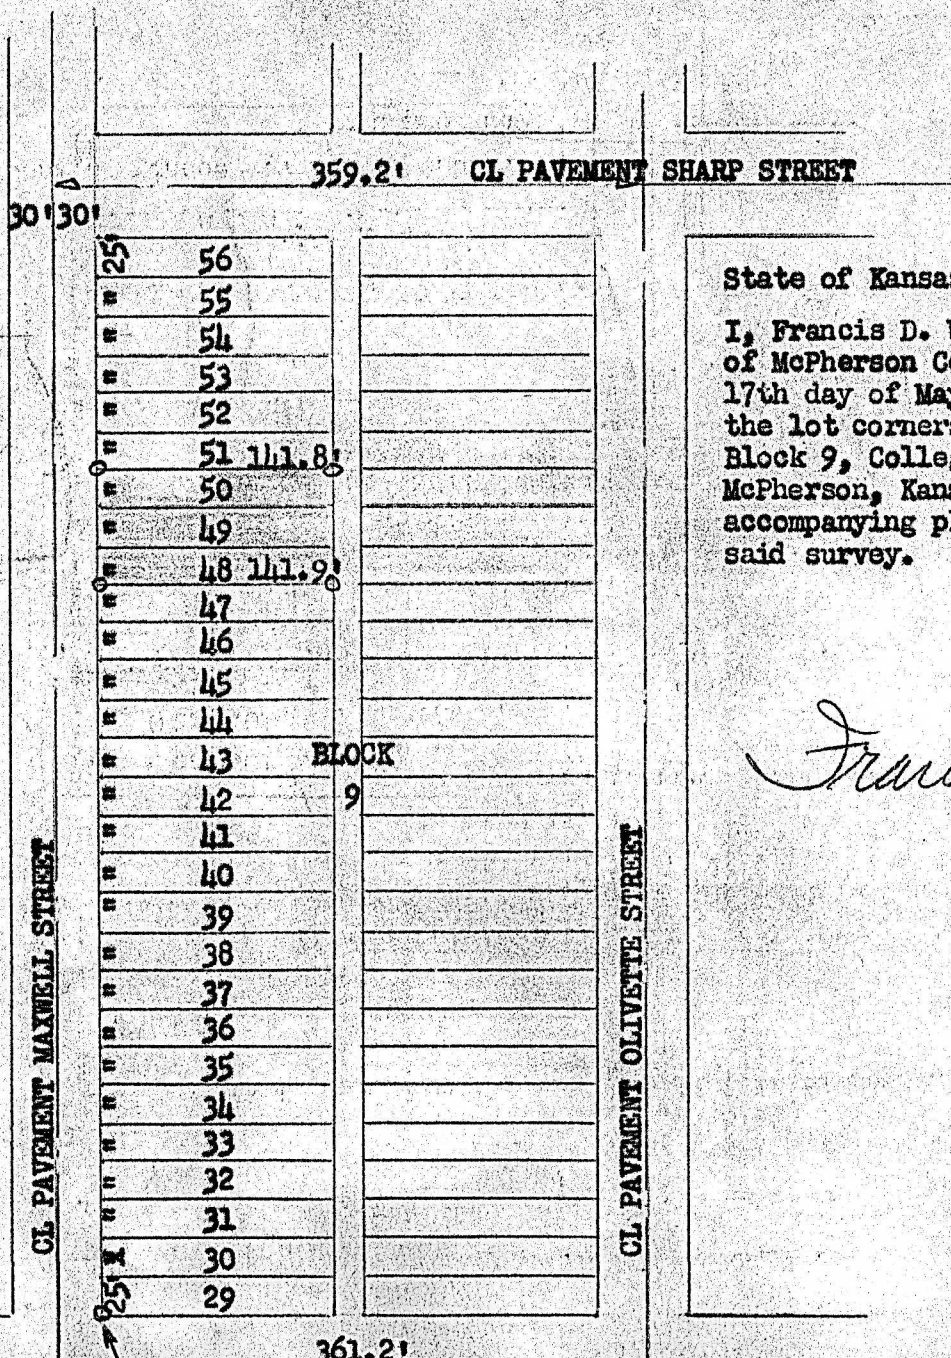 359.2' CL PAVEMENT SHARP STREET
30' 30'
25' 56
" 55
" 54
" 53
" 52
" 51 141.8'
" 50
49
" 48 141.9'
" 47
" 46
" 45
" 44
" 43
" 42
" 41
" 40
" 39
" 38
" 37
" 36
" 35
" 34
" 33
" 32
" 31
" 30
25' 29
BLOCK
9
CL PAVEMENT MAXWELL STREET
CL PAVEMENT OLIVETTE STREET
361.2'
State of Kansa
I, Francis D.
of McPherson Co
17th day of May
the lot corner
Block 9, Colle
McPherson, Kans
accompanying p
said survey.
Fran